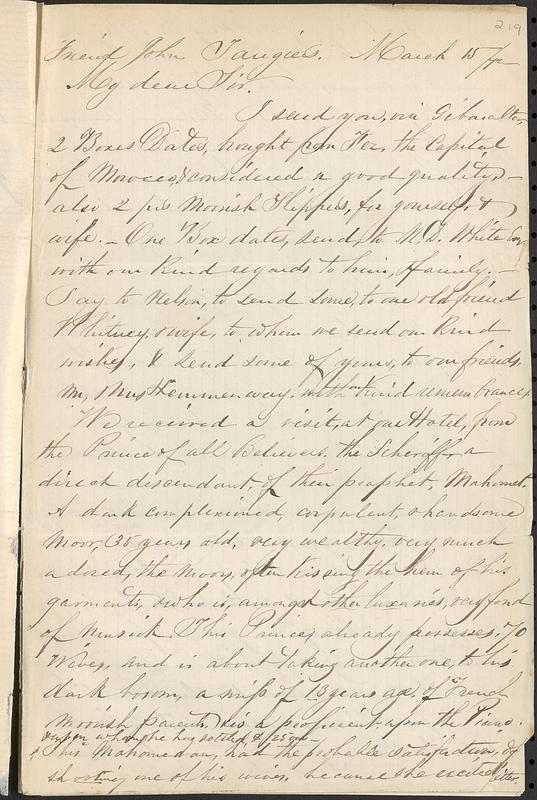 219
Friend John Tangiers. March 15/72
My dear Sir.
I send you, via Gibaralter,
2 Boxes Dates, bought from Fez, the Capital
of Morocco, & considered a good quality, -
also 2 prs Moorish Slippers, for yourself &
wife. - One Box dates, send, to N.D. White Esq,
with our Kind regards to him, & family. -
Say to Nelson, to send some, to our old friend
Whitney, & wife, to whom we send our Kind
wishes, & send some of yours, to our friends,
Mr, Mrs Hemmenway. with our Kind remembrances.
We received a visit, at our Hotel, from
the Prince of all Believers. the Scheriff, a
direct descendant, of their prophet, Mahomet.
A dark complexioned, corpulent, & handsome
Moor, 35 years old, very wealthy, very much
adored, the Moors, often kissing the hem of his
garments, & who is, amongst other luxuries, very fond
of Musick. This Prince, already possesses, 70
Wives, and is about taking another one, to his
dark bosom, a miss of 18 years age, of French
Moorish Parents, & is a proficient upon the Piano.
upon whom he has settled, $ 25000 -
This Mahomedan, had the probable satisfaction, of
shooting one of his wives, because she excited